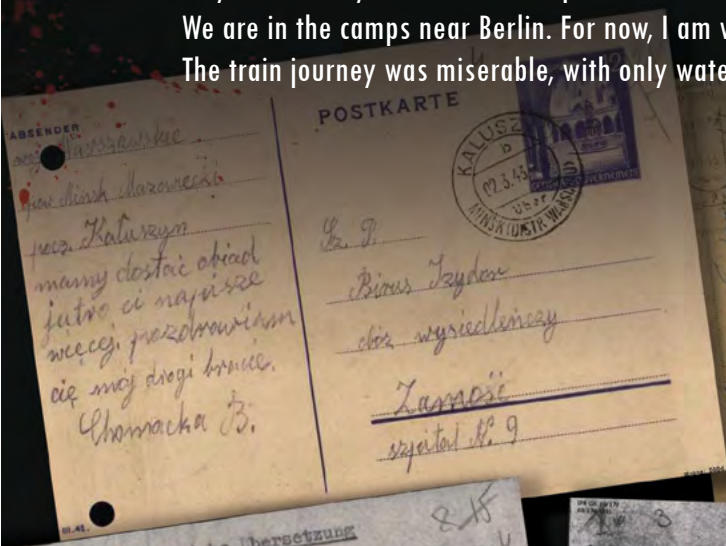 We are in the camps near Berlin. For now, I am
The train journey was miserable, with only
ABSENDER
woj. Warszawskie
pow. Mińsk Mazowiecki
pocz. Kałuszyn
mamy dostać obiad
jutro ci napisze
więcej. pozdrawiam
cię mój drogi bracie.
Chomacka B.
POSTKARTE
KALUSZYN
b
02.3.43
über
MINSK (DISTR. WARSCHAU)
Sz. P.
Birus Izydor
obóz wysiedleńczy
Zamość
szpital N. 9
III.41.
Übersetzung
3